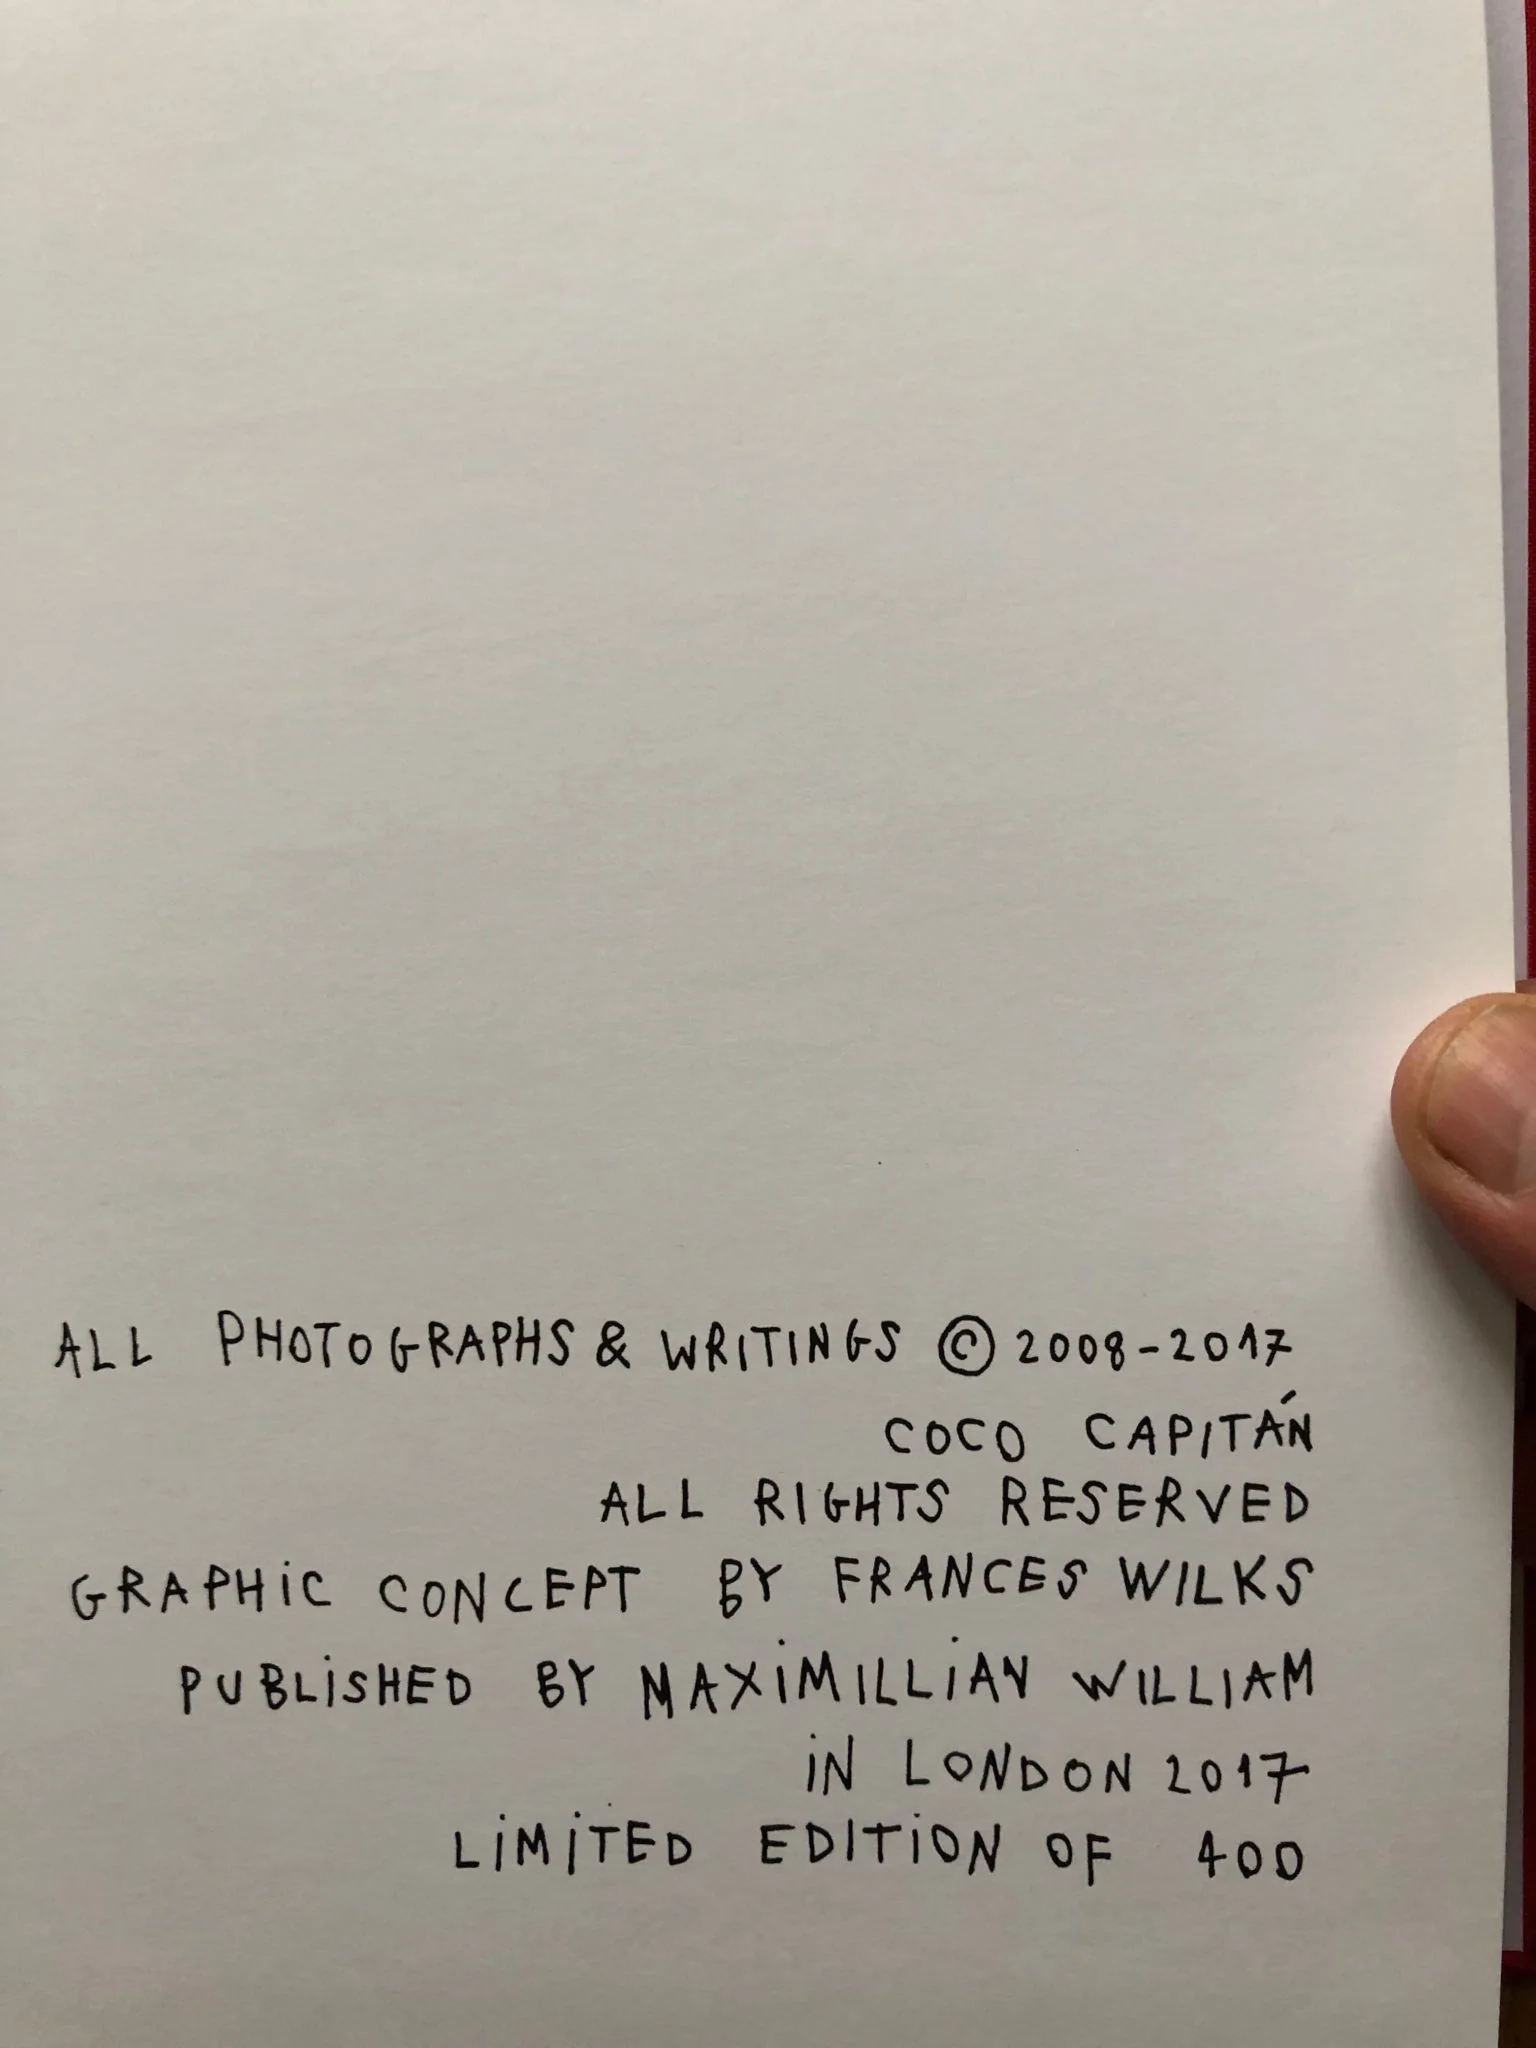 ALL PHOTOGRAPHS & WRITINGS © 2008-2017
COCO CAPITÁN
ALL RIGHTS RESERVED
GRAPHiC CONCEPT BY FRANCES WILKS
PUBLiSHED BY MAXiMILLiAN WILLIAM
iN LONDON 2017
LiMiTED EDITiON OF 400